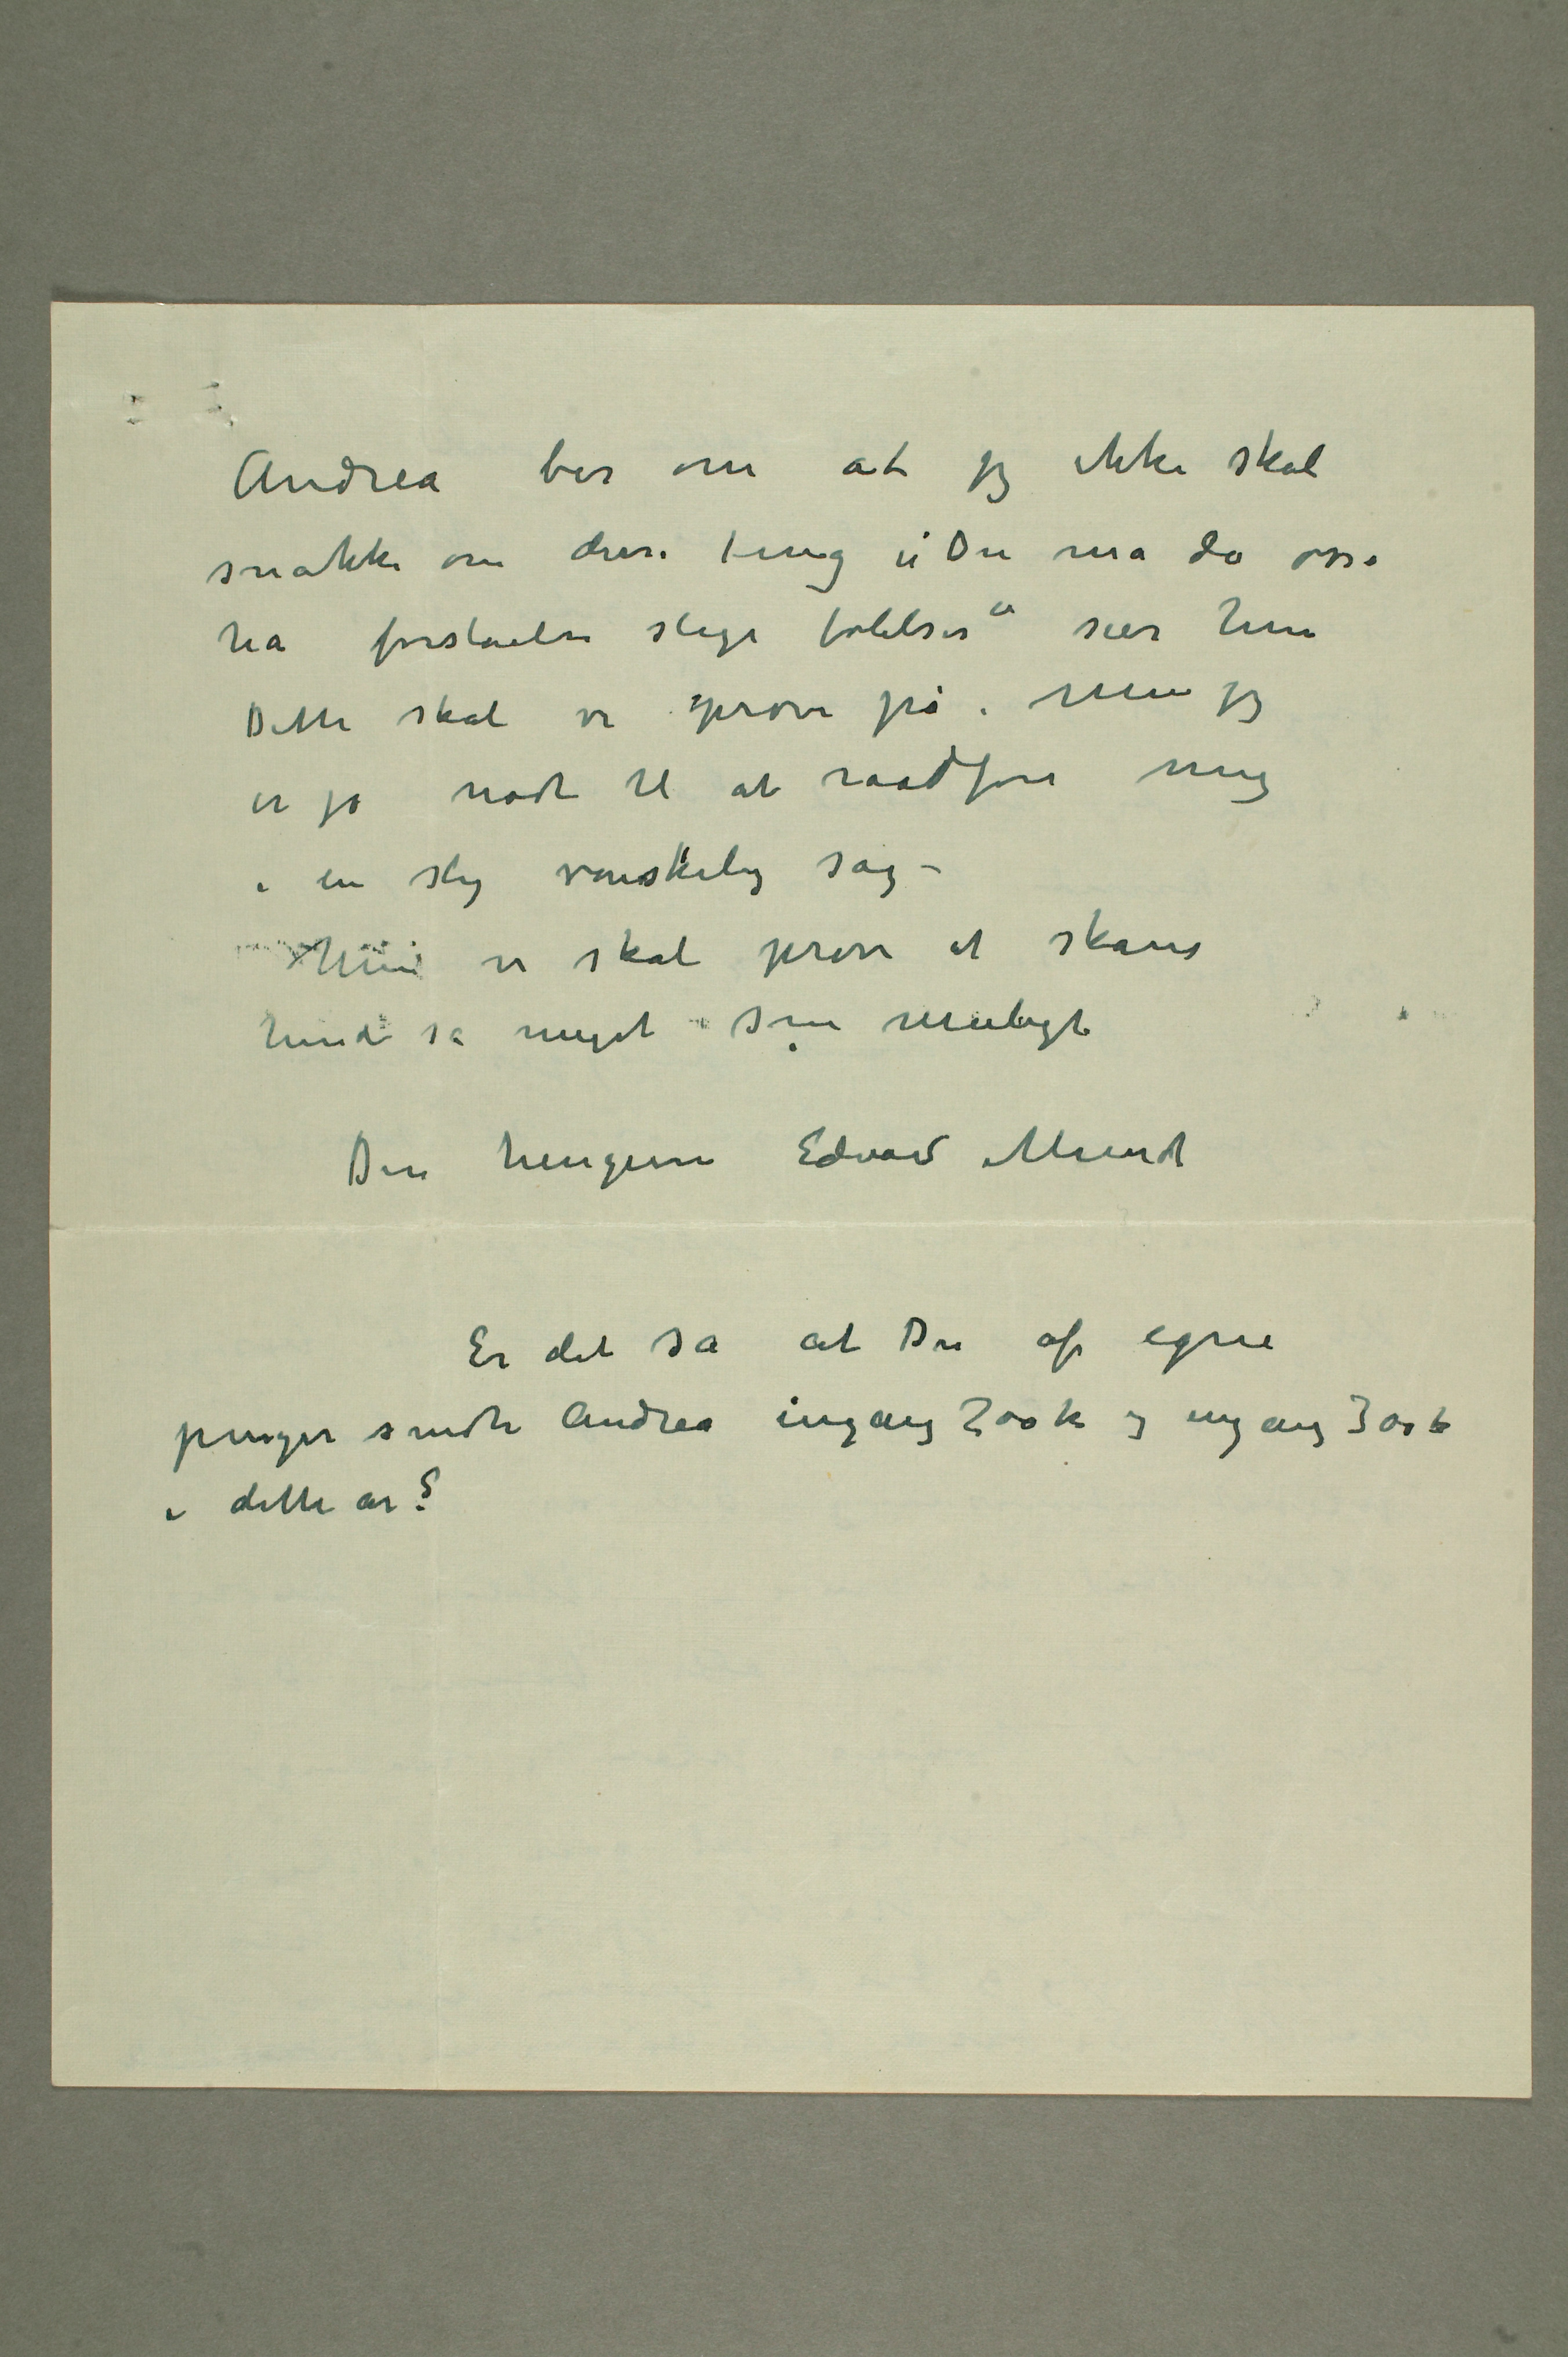 Andrea ber om at jeg ikke skal
snakke om disse ting „Du må da osså
ha forståelse slige følelser“ sier hun
Dette skal vi prøve på. Men jeg
er jo nødt til at raadføre mig
i en slig vanskelig sag –
Men vi skal prøve at skåne
hende så meget som muligt
Din hengivne Edvard Munch
Er det så at Du af egne
penger sendte Andrea engang 200 k og engang 300 k
i dette år?